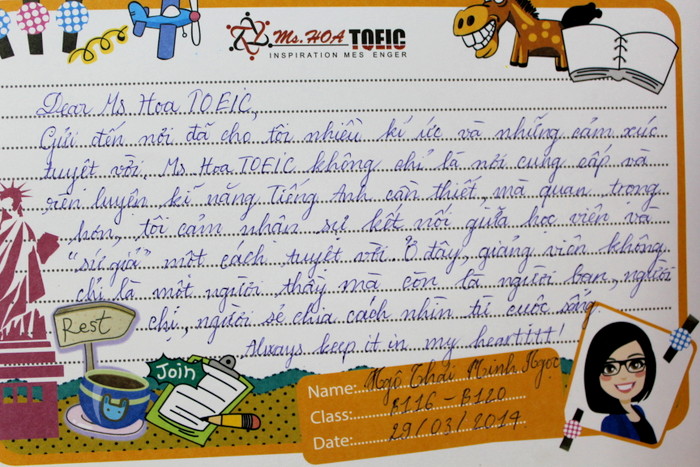 Ms. HOA TOEIC
INSPIRATION MESSENGER
Dear Ms Hoa TOEIC,
Gửi đến nơi đã cho tôi nhiều kí ức và những cảm xúc
tuyệt vời. Ms. Hoa TOEIC không chỉ là nơi cung cấp và
rèn luyện kĩ năng Tiếng Anh cần thiết, mà quan trọng
hơn, tôi cảm nhận sự kết nối giữa học viên và
"sứ giả" một cách tuyệt vời. Ở đây, giảng viên không
chỉ là một người thầy mà còn là người bạn, người
chị, người sẻ chia cách nhìn từ cuộc sống.
Always keep it in my heart!!!!
Rest
Join
Name: Ngô Thái Minh Ngọc
Class: R116 - R120
Date: 29/03/2014